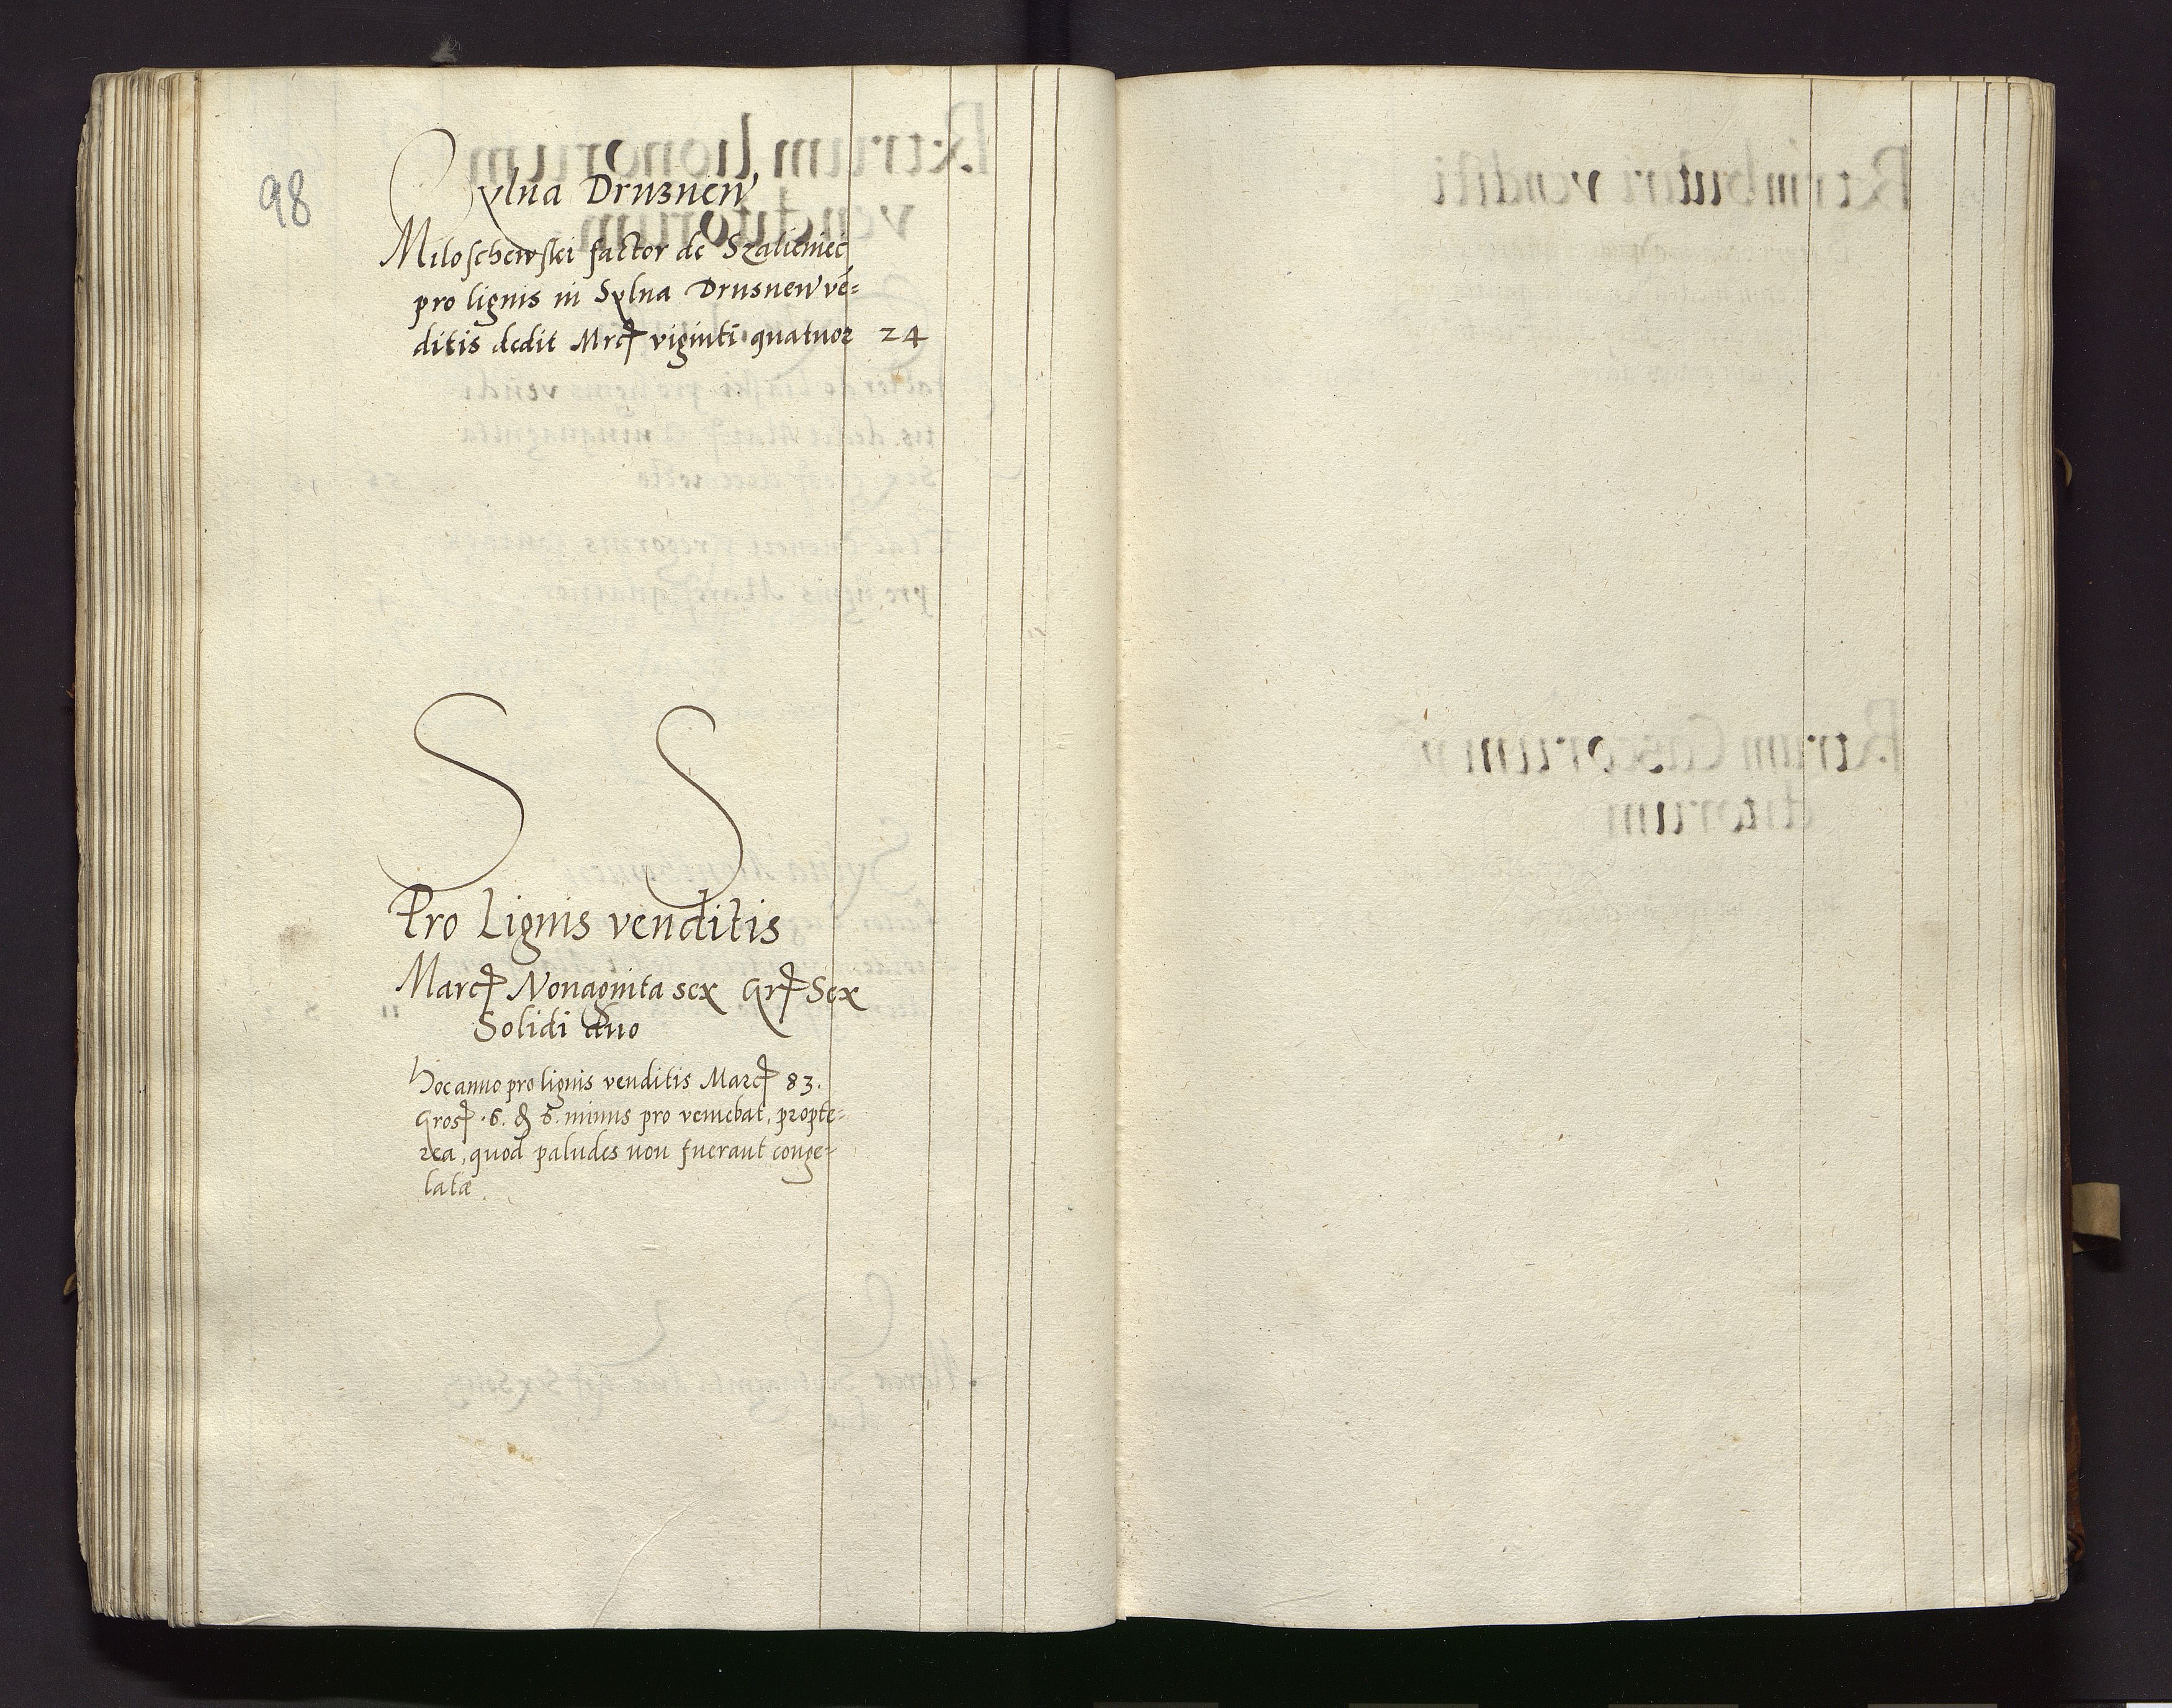 98
Sylua Drusnen
Miloschewski factor de Szalieniec
pro lignis in Sylua Drusnen vē=
ditis dedit Mrcꝭ viginti quatuor 24
S S
Pro Lignis venditis
Marcꝭ Nonaginta sex Grꝭ Sex
Solidi duo
Hoc anno pro lignis venditis Marcꝭ 83.
Grosꝭ .6. 6. minus pro veniebat, propte=
rea, quod paludes non fuerant conge=
latæ.